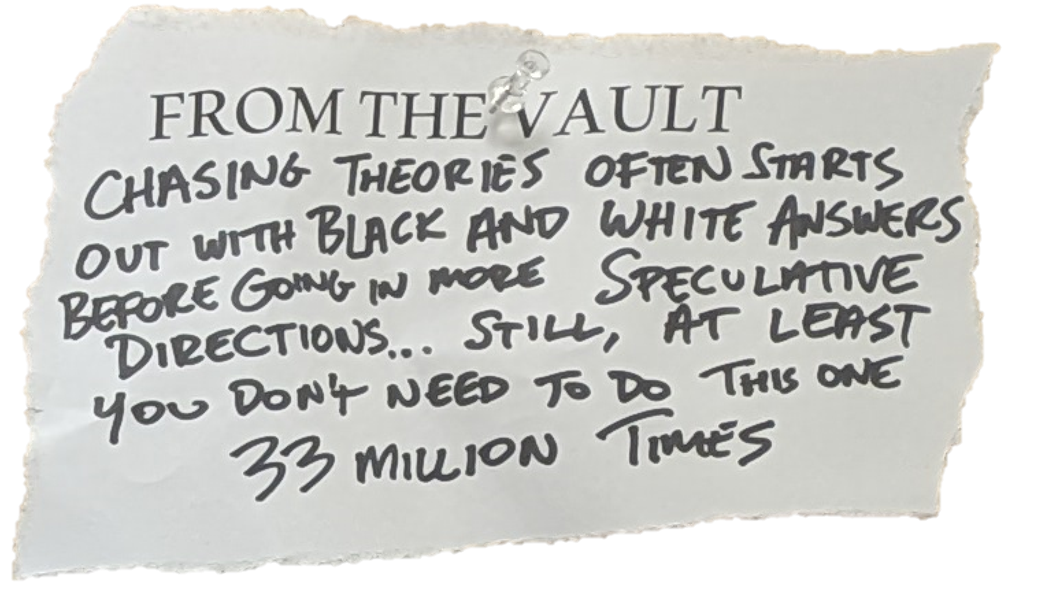 FROM THE VAULT
CHASING THEORIES OFTEN STARTS
OUT WITH BLACK AND WHITE ANSWERS
BEFORE GOING IN MORE SPECULATIVE
DIRECTIONS... STILL, AT LEAST
YOU DON'T NEED TO DO THIS ONE
33 MILLION TIMES